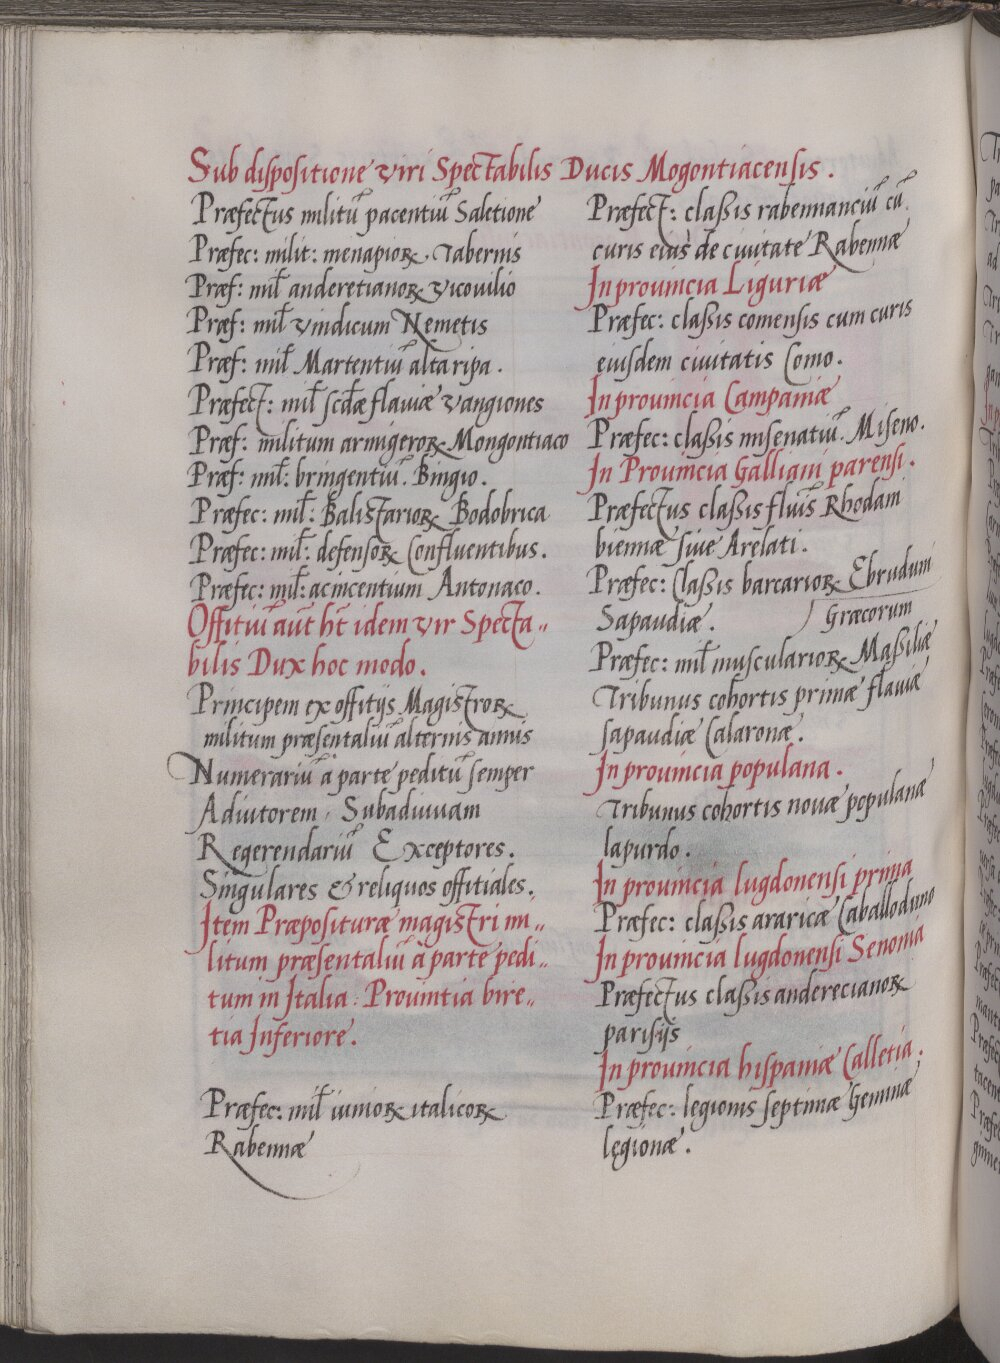 Sub dispositione viri Spectabilis Ducis Mogontiacensis.
Præfectus militũ pacentiũ Saletione
Præfec: milit: menapioꝝ. Tabernis
Præf: mil̃ anderetianoꝝ vicouilio
Præf: mil̃ vindicum Nemetis
Præf: mil̃ Martentiũ alta ripa.
Præfect: mil̃ scdæ flauiæ vangiones
Præf: militum armigeroꝝ Mongontiaco
Præf: mil̃: bringentiũ. Bingio.
Præfec: mil̃: Balistarioꝝ Bodobrica
Præfec: mil̃: defensoꝝ Confluentibus.
Præfec: mil̃: acincentium Antonaco.
Offitiũ aũt hẽt idem vir Specta„
bilis Dux hoc modo.
Principem ex offitijs Magistroꝝ
militum præsentaliũ alternis annis
Numerariũ à parte peditũ semper
Adiutorem, Subadiuuam
Regerendariũ Exceptores.
Singulares & reliquos offitiales.
Item Præposituræ magistri mi„
litum præsentaliũ à parte pedi„
tum in Italia: Prouintia bire„
tia Inferiore.
Præfec: mil̃ iunioꝝ italicoꝝ
Rabennæ
Præfect: classis rabennanciũ cũ
curis eius de ciuitate Rabennæ
In prouincia Liguriæ
Præfec: classis comensis cum curis
eiusdem ciuitatis Como.
In prouincia Campaniæ
Præfec: classis misenatiũ. Miseno.
In Prouincia Galliani parensi.
Præfectus classis fluĩs Rhodani
biennæ siue Arelati.
Præfec: Classis barcarioꝝ Ebruduni
Sapaudiæ. Græcorum
Præfec: mil̃ musculariorꝝ Massiliæ
Tribunus cohortis primæ flauiæ
sapaudiæ Calaronæ.
In prouincia populana.
Tribunus cohortis nouæ populanæ
lapurdo.
In prouincia lugdonensi prima
Præfec: classis araricæ Caballoduno
In prouincia lugdonensi Senonia
Præfectus classis anderecianoꝝ
parisijs
In prouincia hispaniæ Calletia.
Præfec: legionis septimæ Geminæ
legionæ.